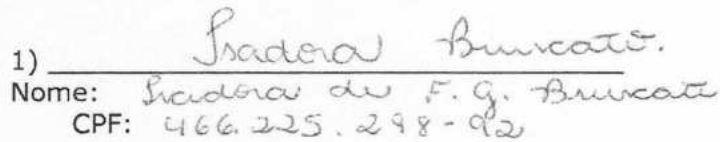 1) Isadora Bruscato.
Nome: Isadora de F. G. Bruscato
CPF: 466.225.298-92